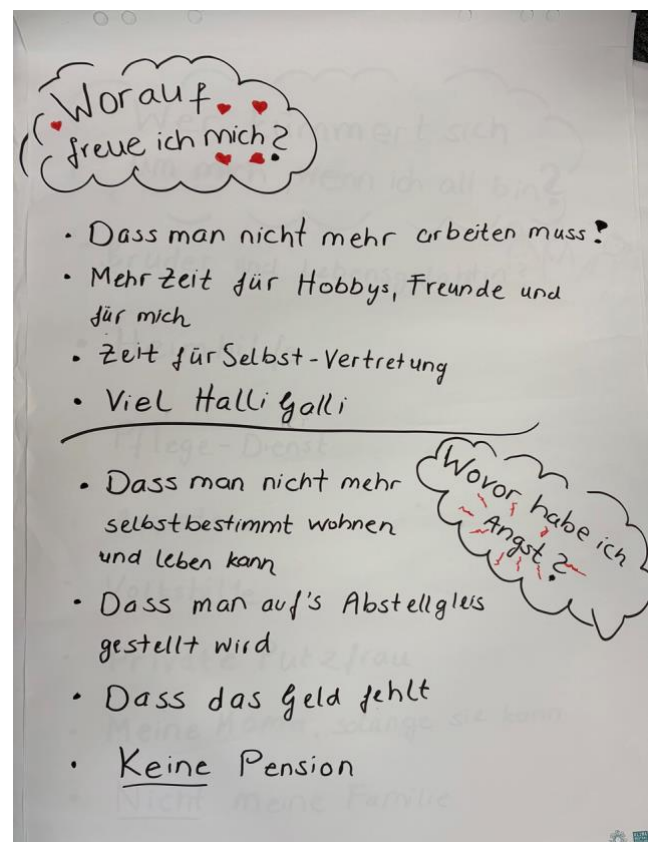 Worauf
freue ich mich?
• Dass man nicht mehr arbeiten muss!
• Mehr Zeit für Hobbys, Freunde und
für mich
• Zeit für Selbst-Vertretung
• Viel Halli Galli
Wovor habe ich
Angst?
• Dass man nicht mehr
selbstbestimmt wohnen
und leben kann
• Dass man auf's Abstellgleis
gestellt wird
• Dass das Geld fehlt
• Keine Pension